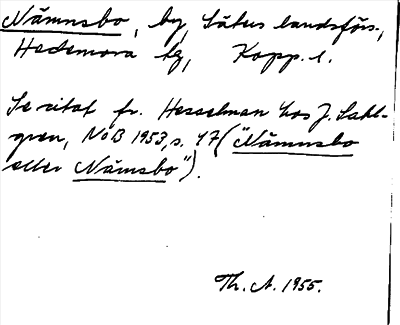 Nämnsbo, by, Säters landsförs.,
Hedemora tg, Kopp. l.
Se citat fr. Hesselman hos J. Sahl-
gren, NoB 1953, s. 47 ("Nämnsbo
eller Nämsbo").
Th. A. 1955.